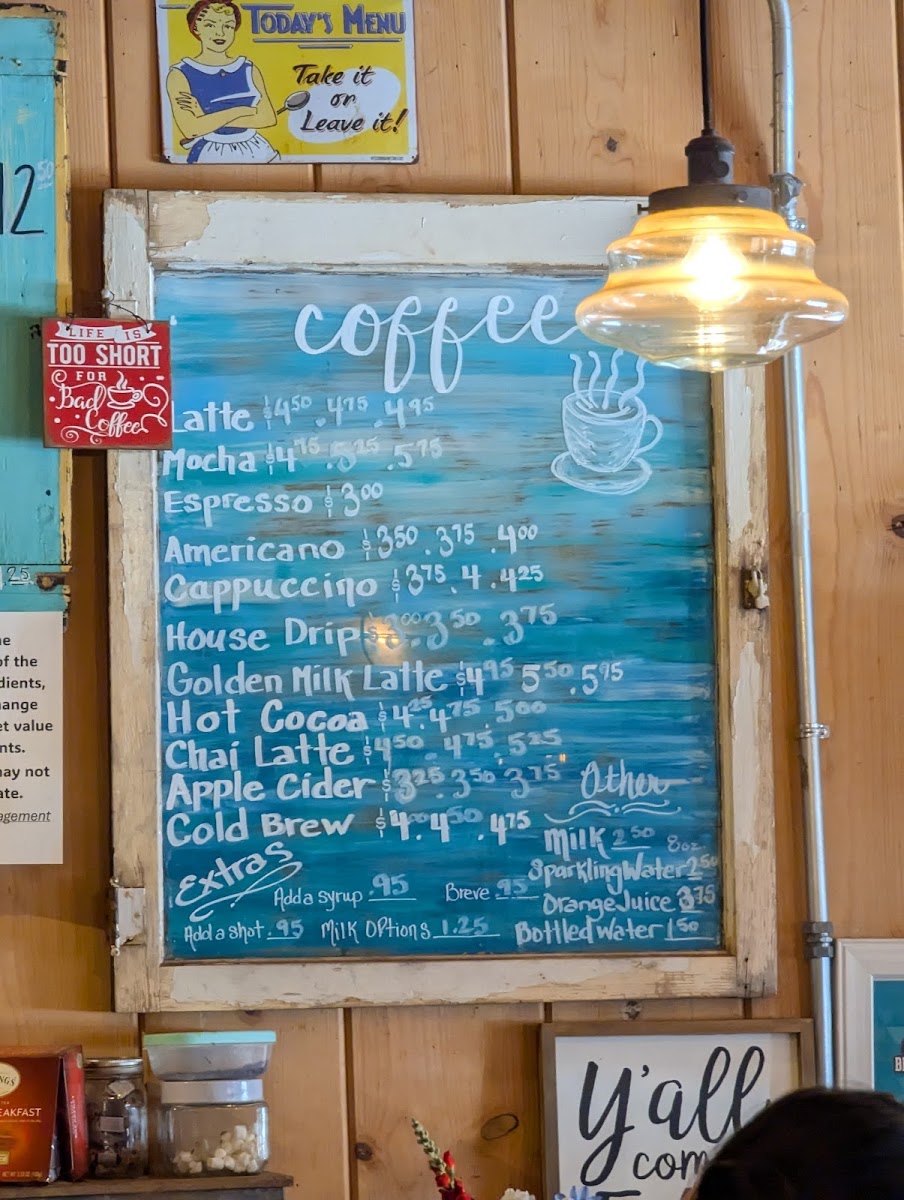 TODAY'S MENU
Take it
or
Leave it!
12 50
LIFE IS
TOO SHORT
FOR
Bad
Coffee
coffee
Latte $4.50 .4.75 .4.95
Mocha $4.75 .5.25 .5.75
Espresso $3.00
Americano $3.50 .3.75 .4.00
Cappuccino $3.75 .4 .4.25
House Drip $3.00 .3.50 .3.75
Golden Milk Latte $4.95 5.50 .5.95
Hot Cocoa $4.25 .4.75 .5.00
Chai Latte $4.50 .4.75 .5.25
Apple Cider $3.25 .3.50 3.75
Cold Brew $4. .4.50 .4.75
Other
Milk 2.50 8oz
Sparkling Water 2.50
Orange Juice 3.75
Bottled Water 1.50
Extras
Add a syrup .95 Breve .95
Add a shot .95 Milk Options 1.25
.25
of the
dients,
ange
et value
nts.
may not
ate.
agement
NGS
EAKFAST
Y'all
com